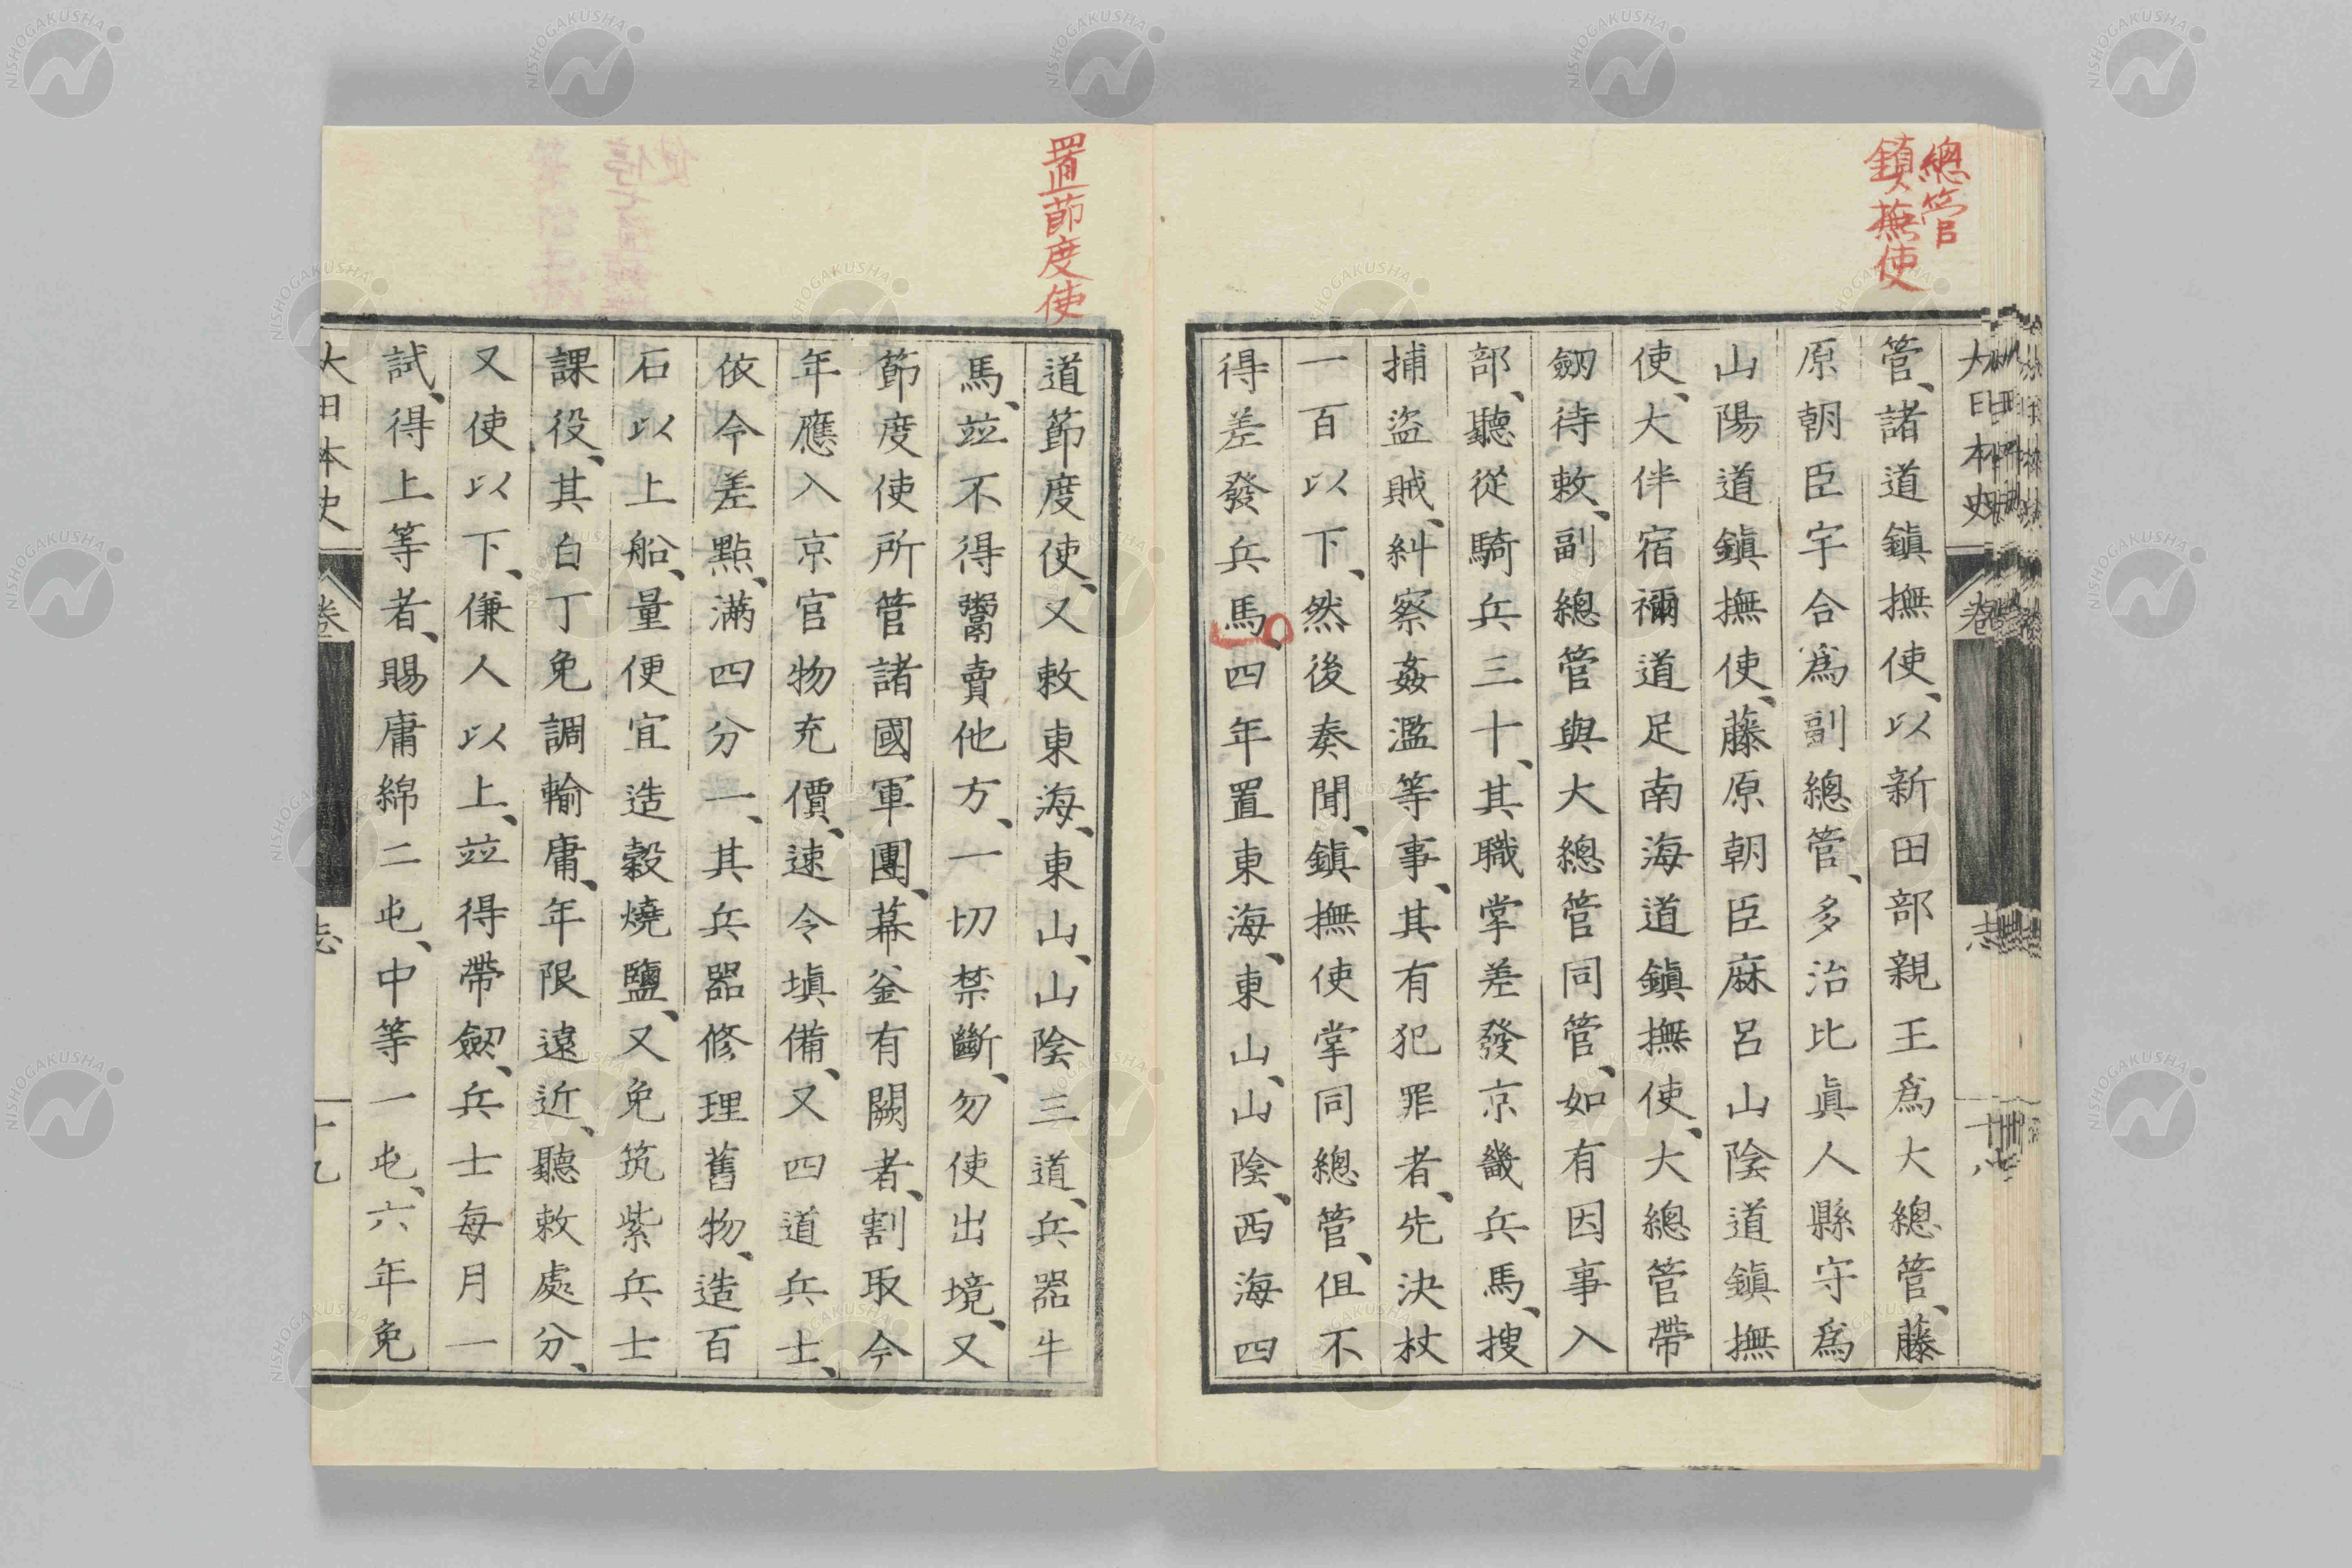 總管
鎮撫使
大日本史
卷
志
管、諸道鎮撫使、以新田部親王爲大總管、藤
原朝臣宇合爲副總管、多治比眞人縣守爲
山陽道鎮撫使、藤原朝臣麻呂山陰道鎮撫
使、大伴宿禰道足南海道鎮撫使、大總管帶
劒待敕、副總管與大總管同管、如有因事入
部、聽從騎兵三十、其職掌差發京畿兵馬、搜
捕盜賊、糾察姦濫等事、其有犯罪者、先決杖
一百以下、然後奏聞、鎮撫使掌同總管、但不
得差發兵馬、四年置東海、東山、山陰、西海四
置節度使
道節度使、又敕東海、東山、山陰三道、兵器牛
馬、竝不得鬻賣他方、一切禁斷、勿使出境、又
節度使所管諸國軍團、幕釜有闕者、割取今
年應入京官物充價、速令塡備、又四道兵士、
依令差點、滿四分一、其兵器修理舊物、造百
石以上船、量便宜造穀燒鹽、又免筑紫兵士
課役、其白丁免調輸庸、年限遠近、聽敕處分、
又使以下、傔人以上、竝得帶劒、兵士每月一
試、得上等者、賜庸綿二屯、中等一屯、六年免
大日本史
卷
志
十九
NISHOGAKUSHA